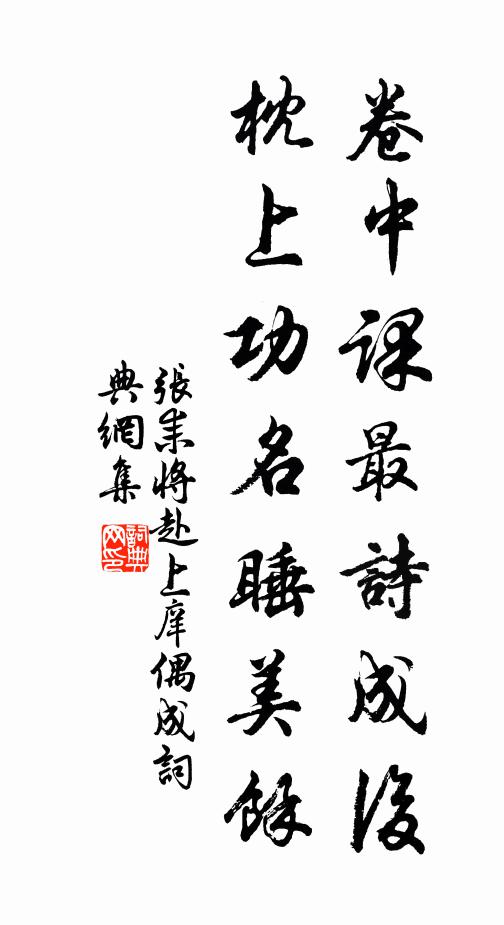 卷中課最詩成後
枕上功名睡美餘
張耒將赴上庠偶成詞
典網集
詞典
网印